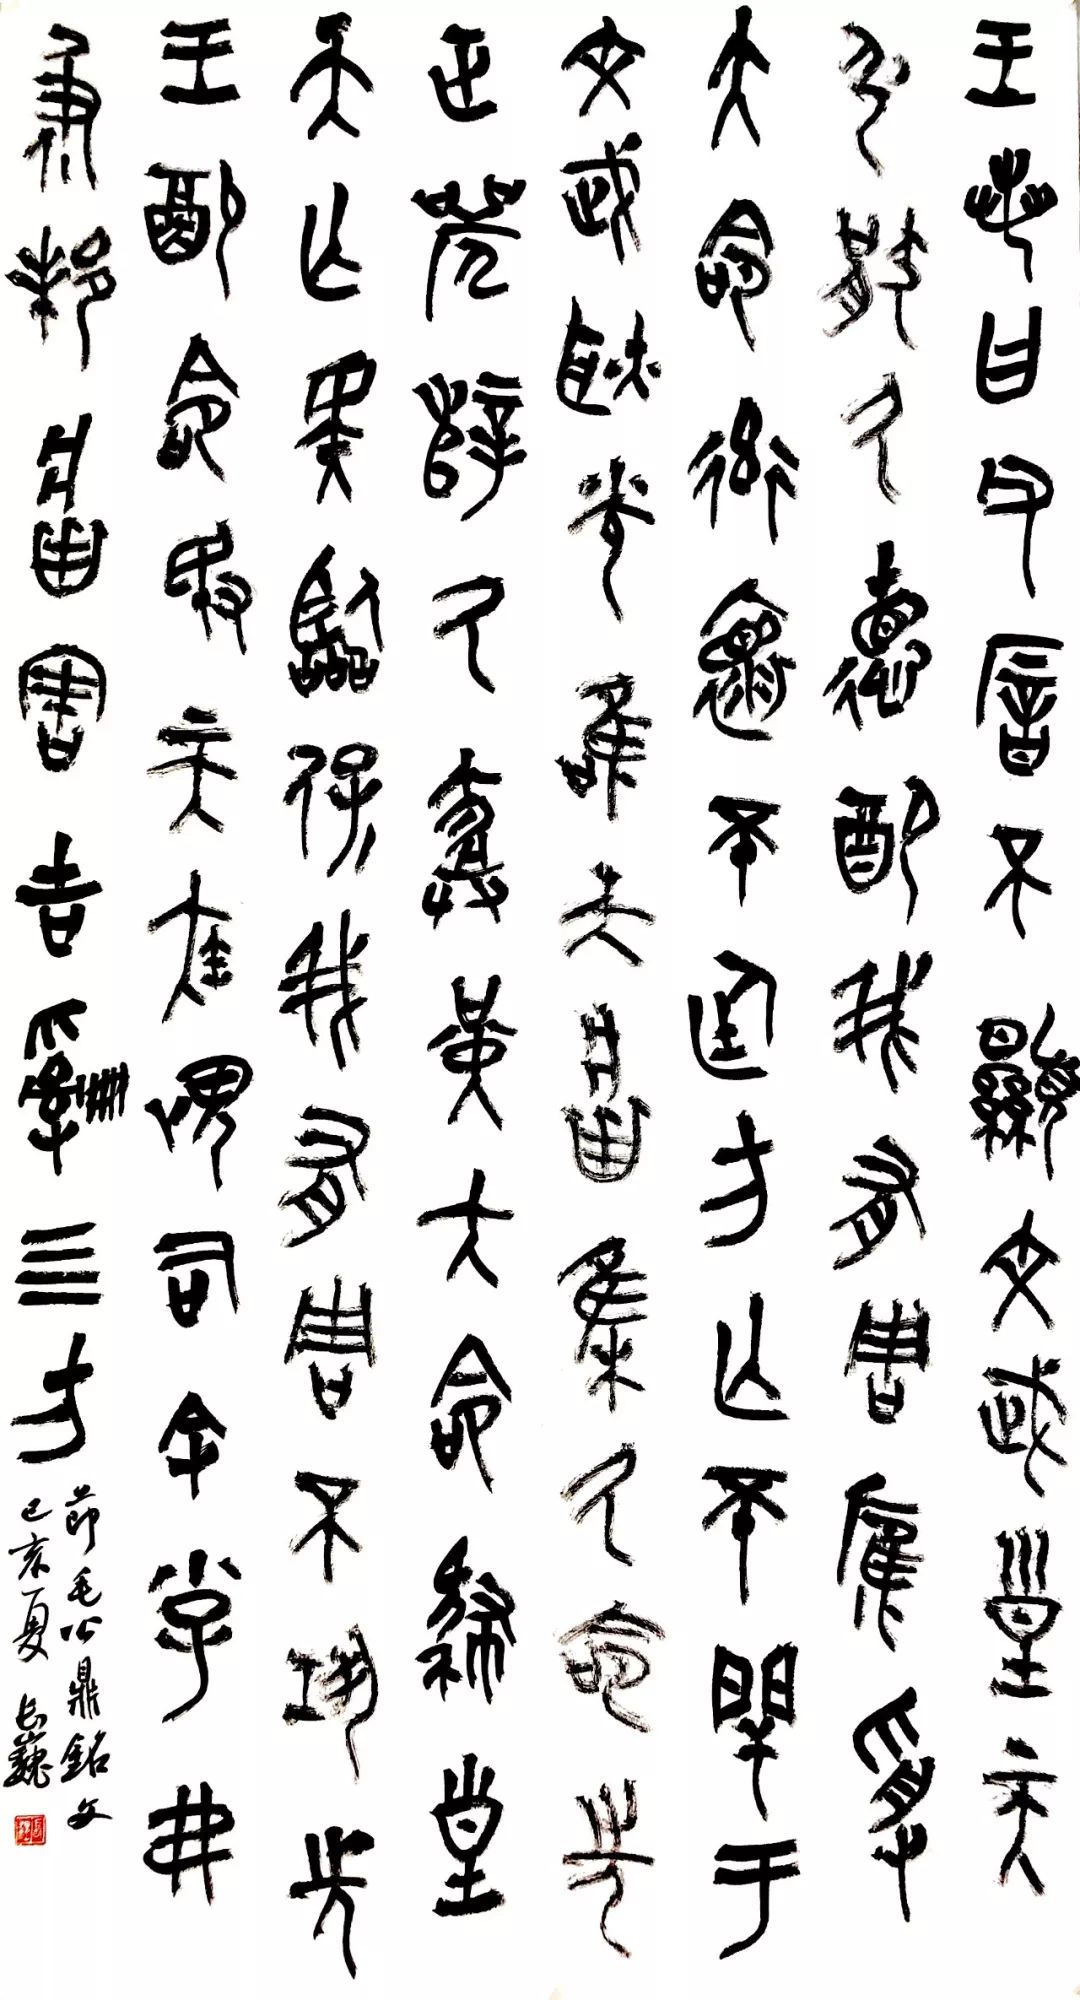 王若曰父厝不顯文武皇天
弘猒厥德配我有周膺受
大命率懷不廷方亡不閈于
文武耿光唯天將集厥命先
正辥厥堇大命肆皇
天亡斁臨保我有周不巩先
王配命敃天疾畏司余小子弗
彶邦將害吉𤔲四方
節毛公鼎銘文
己亥夏